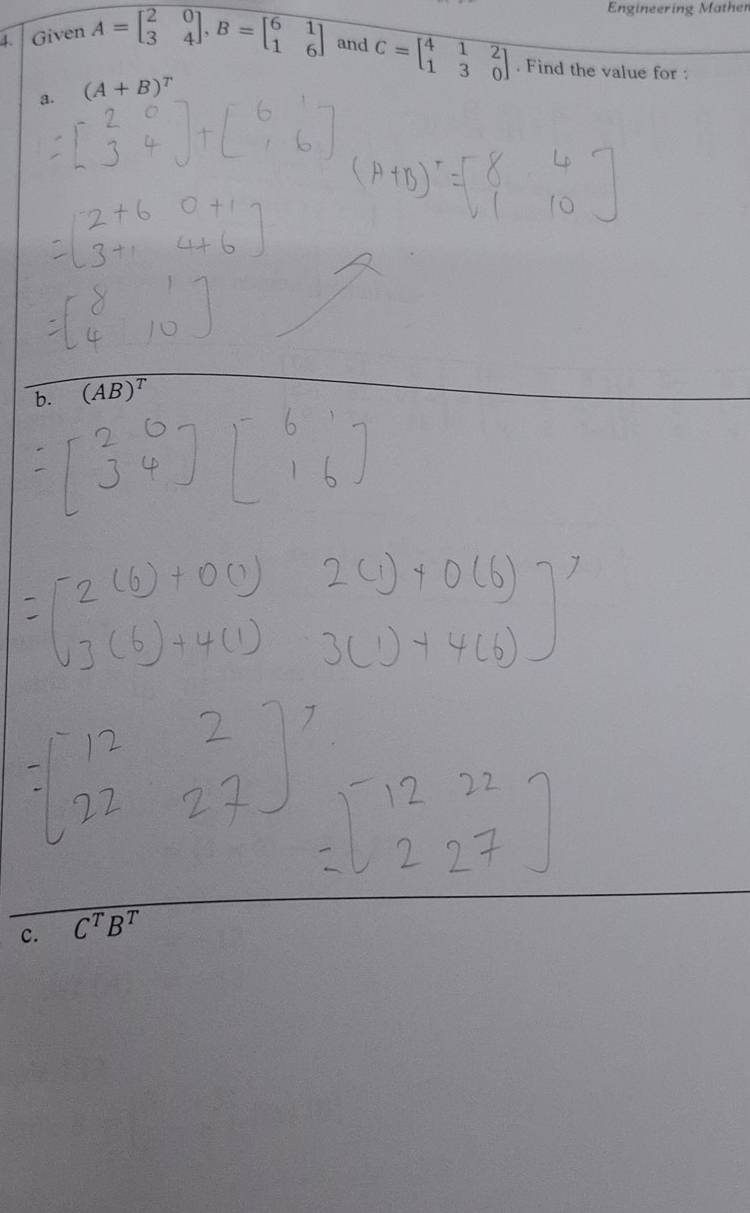 Engineering Mathem
4. Given A = [2 0 3 4], B = [6 1 1 6] and C = [4 1 2 1 3 0]. Find the value for :
a. (A + B)ᵀ
= [2 0 3 4] + [6 1 1 6]
(A+B)ᵀ = [8 4 1 10]
= [2+6 0+1 3+1 4+6]
= [8 1 4 10]
b. (AB)ᵀ
= [2 0 3 4] [6 1 1 6]
= [2(6)+0(1) 2(1)+0(6)
3(6)+4(1) 3(1)+4(6)]ᵀ
= [12 2 22 27]ᵀ
= [12 22 2 27]
c. CᵀBᵀ